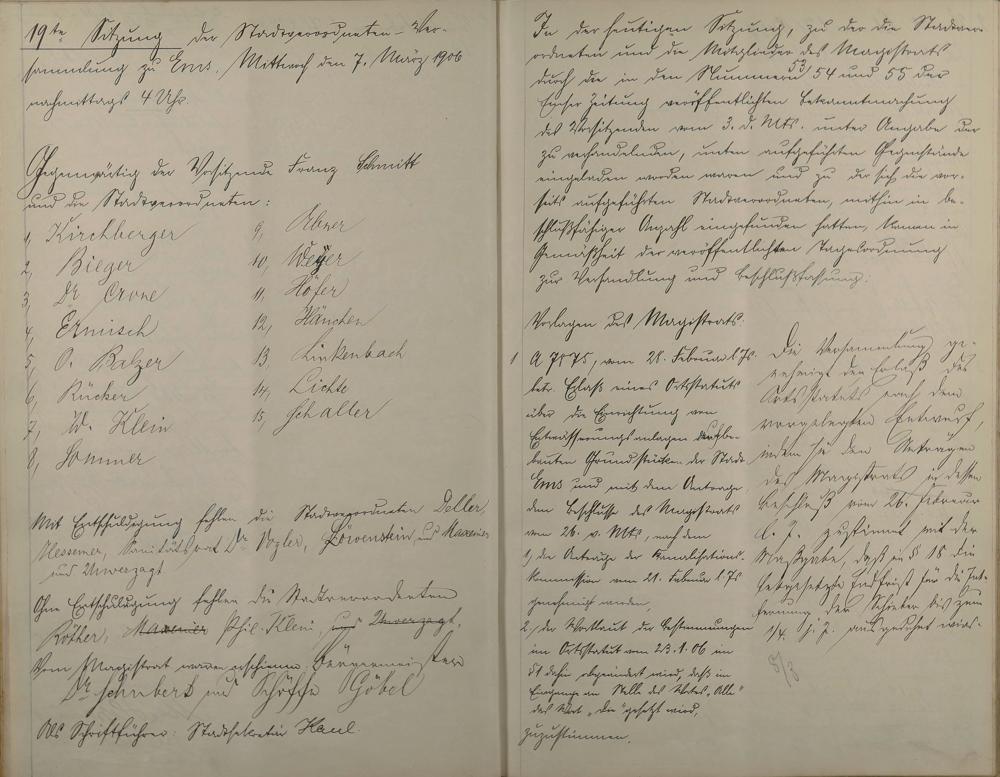 19te Sitzung der Stadtverordneten-Ver-
sammlung zu Ems. Mittwoch den 7. März 1906
nachmittags 4 Uhr.
Gegenwärtig der Vorsitzende Franz Schmitt
und die Stadtverordneten:
1, Kirchberger
2, Bieger
3, Dr Crone
4, Ermisch
5, O. Balzer
6, Rücker
7, W. Klein
8, Sommer
9, Ebner
10, Weyer
11, Höfer
12, Hänchen
13, Linkenbach
14, Lichte
15, Schaller
Mit Entschuldigung fehlen die Stadtverordneten Deller,
Hessemer, Sanitätsrat Dr Vogler, Löwenstein, und Maxeiner
und Unverzagt
Ohne Entschuldigung fehlen die Stadtverordneten
Röther, Maxeiner Phil. Klein, und Unverzagt.
Vom Magistrat waren erschienen: Bürgermeister
Dr Schubert und Schöffe Göbel
Als Schriftführer: Stadtsekretär Kaul.
In der heutigen Sitzung, zu der die Stadtver-
ordneten und die Mitglieder des Magistrats
durch die in den Nummern 53 54 und 55 der
Emser Zeitung veröffentlichten Bekanntmachung
des Vorsitzenden vom 3. d. Mts. unter Angabe der
zu verhandelnden, unten aufgeführten Gegenstände
eingeladen worden waren und zu der sich die vor-
seits aufgeführten Stadtverordneten, mithin in be-
schlußfähiger Anzahl eingefunden hatten, kamen in
Gemäßheit der veröffentlichten Tagesordnung
zur Verhandlung und Beschlußfassung:
Vorlagen des Magistrats.
1 A 7875, vom 28. Februar l. Js.
betr. Erlaß eines Ortsstatuts
über die Einrichtung von
Entwässerungsanlagen auf be-
bauten Grundstücken der Stadt
Ems und mit dem Antrage,
dem Beschlusse des Magistrats
vom 26. v. Mts, nach dem
1, die Anträge der Kanalisations-
kommission vom 21. Februar l. Js
genehmigt werden,
2, der Wortlaut der Bestimmungen
im Ortsstatut vom 23.1.06 im
§1 dahin abgeändert wird, daß im
Eingange an Stelle des Wortes „Alle"
das Wort „Die" gesetzt wird,
zuzustimmen.
Die Versammlung ge-
nehmigt den Erlaß des
Ortsstatuts nach dem
vorgelegten Entwurf,
indem sie den Anträgen
des Magistrats in dessen
Beschluß vom 26. Februar
l. J. zustimmt mit der
Maßgabe, daß in § 18 die
festgesetzte Endfrist für die Ent-
fernung der Schilder bis zum
1/4. j. J. ausgedehnt wird.